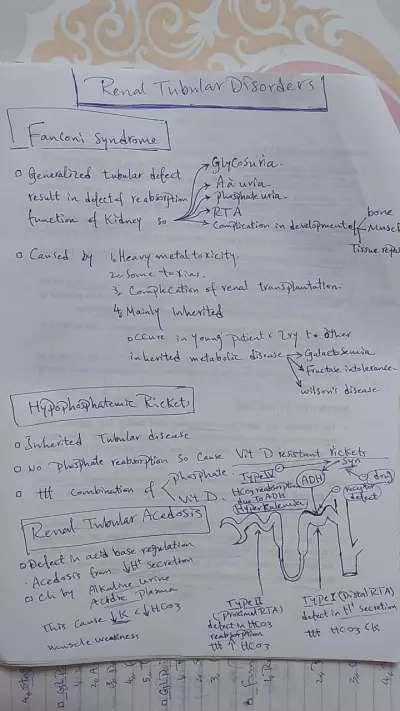 Renal Tubular Disorders
Fanconi Syndrome
Generalized tubular defect
result in defect of reabsorption
function of Kidney so
Glycosuria.
Aa uria.
phosphate uria.
RTA
Complication in development of
bone
Muscle
Tissue repair
Caused by 1. Heavy metal toxicity.
2. Some toxins.
3. Complecation of renal transplantation.
4. Mainly inherited
occure in young patient < 2ry to other
inherited metabolic disease
Galactosemia
Fructase intolerance.
wilson's disease.
Hypophosphatemic Rickets
Inherited Tubular disease
No phosphate reabsorption so cause Vit D resistant rickets
ttt combination of phosphate.
Vit D.
Type IV
HCO3 reabsorption
due to ADH
Hyperkalemia
ADH
syn
drug
receptor
defect
Renal Tubular Acedosis
Defect in acid base regulation
Acedosis from ↓H+ secretion
ch by Alkaline urine
Acidic plasma
This cause ↓K < ↓HCO3
muscle weakness
Type II
(Proximal RTA)
defect in HCO3
reabsorption
ttt ↑ HCO3
Type I (Distal RTA)
defect in H+ secretion
ttt HCO3 < K